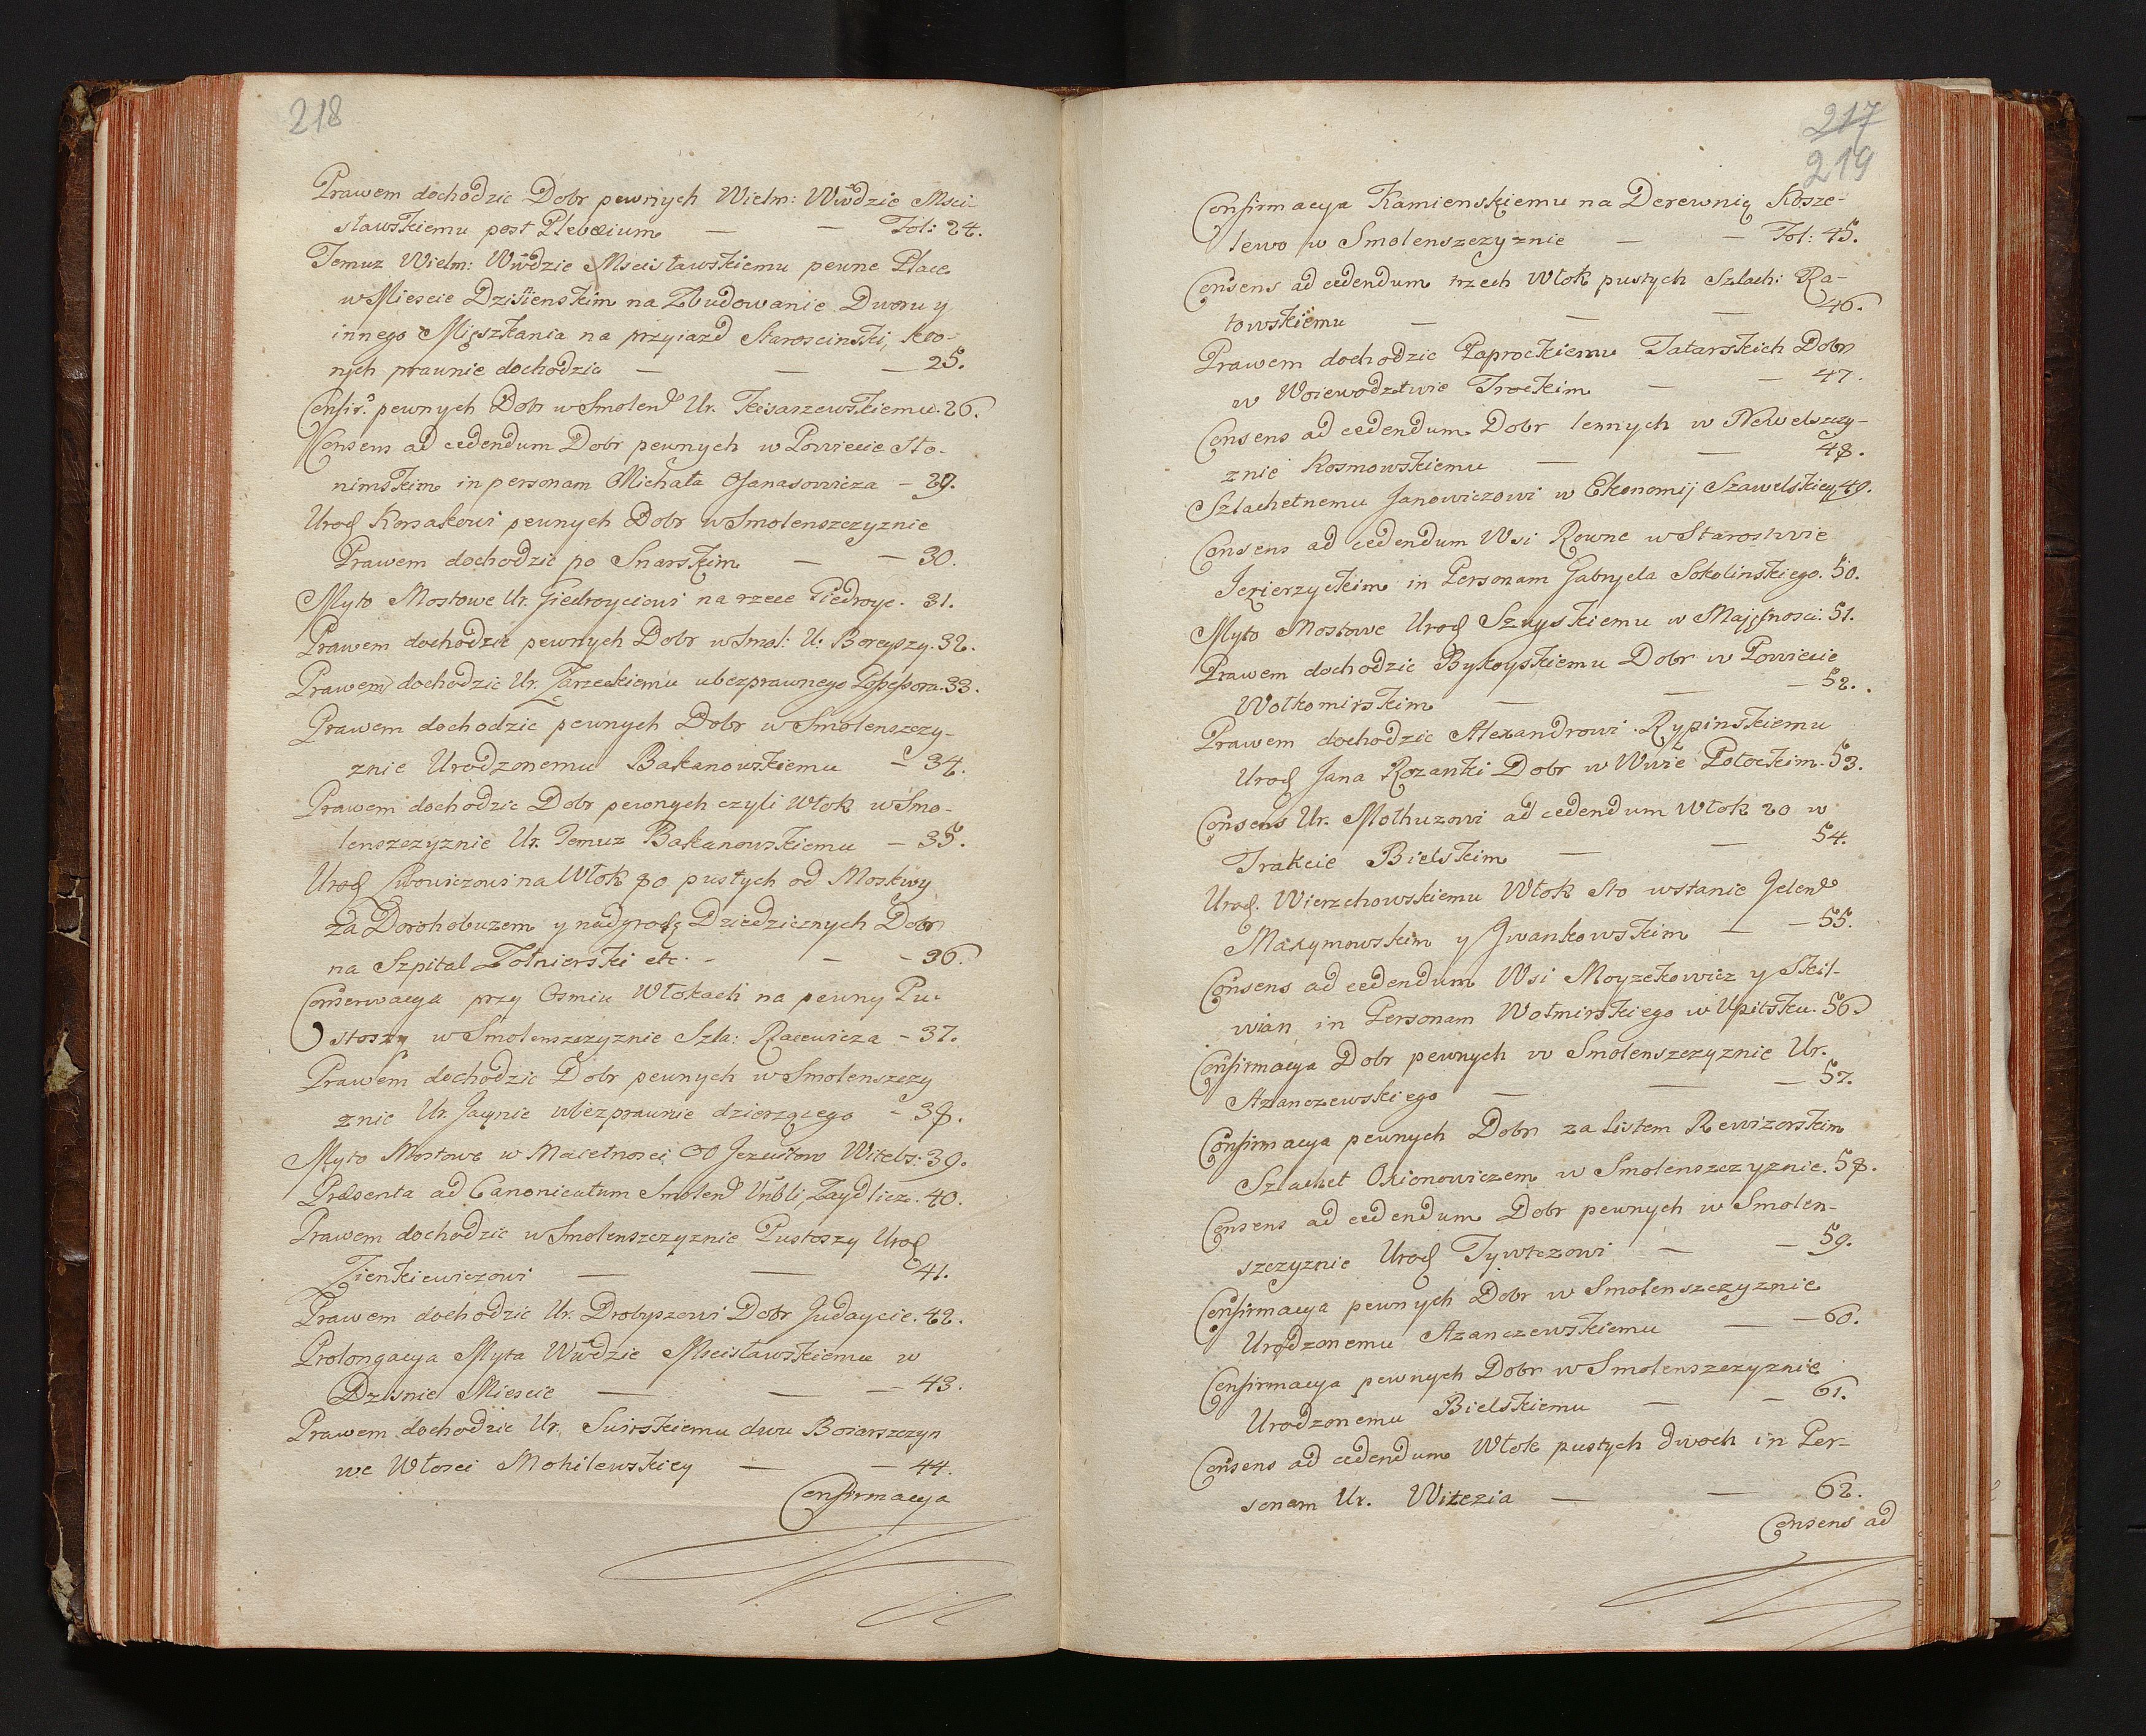 218
Prawem dochodzic Dobr pewnych Wielm: Wwdzie Msci-
sławskiemu post Plebeium — — Fol: 24.
Temuz Wielm: Wwdzie Mscisławskiemu pewne Place
w Miescie Dzisienskim na Zbudowanie Dworu y
innego Mięszkania na przyiazd Staroscinski, kto-
rych prawnie dochodzic — — — 25.
Consir. pewnych Dobr w Smolen: Ur. Kisarzewskiemu. 26.
Consens ad cedendum Dobr pewnych w Powiecie Sło-
nimskim in personam Michała Janasowicza — 29.
Urod Korsakowi pewnych Dobr w Smolenszczyznie
Prawem dochodzic po Snarskim — — 30.
Myto Mostowe Ur. Giedroyciowi na rzece Giedroyc. 31.
Prawem dochodzic pewnych Dobr w Smol: U: Boreyszy. 32.
Prawem dochodzic Ur. Zarzeckiemu ubezprawnego Possessora. 33.
Prawem dochodzic pewnych Dobr w Smolenszczy-
znie Urodzonemu Bakanowskiemu — 34.
Prawem dochodzic Dobr pewnych czyli Włok w Smo-
lenszczyznie Ur. Temuz Bakanowskiemu — 35.
Urod Lwowiczowi na Włok 80 pustych od Moskwy
za Dorohobuzem y nadgrodę Dziedzicznych Dobr
na Szpital Zołnierski etc. - — - 36.
Conserwacya przy Osmiu Włokach na pewny Pu-
stoszy w Smolenszczyznie Szla: Racewicza - 37.
Prawem dochodzic Dobr pewnych w Smolenszczy
znie Ur. Jacynie ubezprawnie dzierzącego - 38.
Myto Mostowe w Macetnosci OO Jezuitow Witebs: 39.
Præsenta ad Canonicatum Smolen: Vnbli Zaydlicz. 40.
Prawem dochodzic w Smolenszczyznie Pustoszy Urod
Zienkiewiczowi — — 41.
Prawem dochodzic Ur. Drobyszowi Dobr Judaycie. 42.
Prolongacya Myta Wwdzie Mscisławskiemu w
Dzisnie Miescie — — — 43.
Prawem dochodzic Ur. Suirskiemu dwu Boiarszczyn
we Włosci Mohilewskiey — — 44.
Confirmacya
217
219
Confirmacya Kamienskiemu na Derewnią Kosze-
lewo w Smolenszczyznie — — Fol: 45.
Consens ad cedendum trzech Włok pustych Szlach: Ra-
towskiemu — — — 46.
Prawem dochodzic Paprockiemu Tatarskich Dobr
w Woiewodztwie Trockim — — 47.
Consens ad cedendum Dobr lennych w Newelszczy-
znie Kosmowskiemu — — 48.
Szlachetnemu Janowiczowi w Ekonomij Szawelskiey 49.
Consens ad cedendum Wsi Rowne w Starostwie
Jezierzyckim in Personam Gabryela Sokolinskiego. 50.
Myto Mostowe Urod Szuyskiemu w Majętnosci. 51.
Prawem dochodzic Bykoyskiemu Dobr w Powiecie
Wołkomirskim — — — 52.
Prawem dochodzic Alexandrowi Rypinskiemu
Urod Jana Rozanki Dobr w Wwie Połockim. 53.
Consens Ur. Mołhuzowi ad cedendum Włok 20 w
Trakcie Bielskim — — 54.
Urod. Wierzchowskiemu Włok Sto wstanie Jelen:
Maxymowskim y Jwankowskim — — 55.
Consens ad cedendum Wsi Moyzekowicz y Skil-
wian in Personam Wołmirskiego w Upitsku. 56
Confirmacya Dobr pewnych w Smolenszczyznie Ur.
Azanczewskiego — — — 57.
Confirmacya pewnych Dobr za Listem Rewizorskim
Szlachet Oxienowiczem w Smolenszczyznie. 58.
Consens ad cedendum Dobr pewnych w Smolen-
szczyznie Urod Tywtczowi — — 59.
Confirmacya pewnych Dobr w Smolenszczyznie
Urodzonemu Azanczewskiemu — — 60.
Confirmacya pewnych Dobr w Smolenszczyznie
Urodzonemu Bielskiemu — — 61.
Consens ad cedendum Włok pustych dwoch in Per-
sonam Ur. Witezia — — 62.
Consens ad